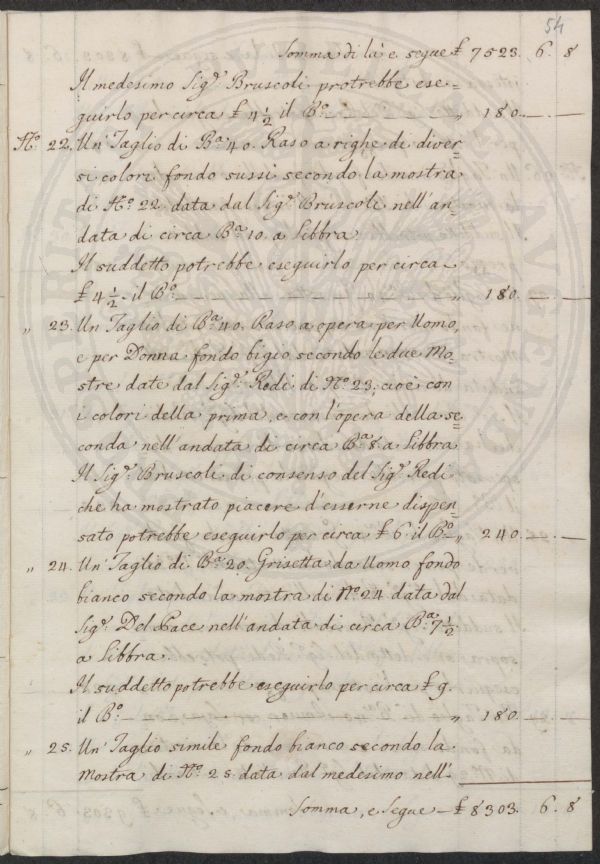 54
Somma di là e segue £ 7523. 6. 8
Il medesimo Sig.r Bruscoli protrebbe ese=
guirlo per circa £ 4½ il B.o — — — — „ 180. — —
N.o 22. Un Taglio di B.a 40. Raso a righe di diver=
si colori fondo sussi secondo la mostra
di N.o 22 data dal Sig.r Bruscoli nell'an=
data di circa B.a 10. a Libbra
Il suddetto potrebbe eseguirlo per circa
£ 4½. il B.o — — — — — — „ 180. — —
„ 23. Un Taglio di B.a 40. Raso a opera per Uomo,
e per Donna fondo bigio secondo le due Mo=
stre date dal Sig.r Redi di N.o 23; cioè con
i colori della prima, e con l'opera della se=
conda nell'andata di circa B.a 8. a Libbra
Il Sig.r Bruscoli di consenso del Sig.r Redi
che ha mostrato piacere d'esserne dispen=
sato potrebbe eseguirlo per circa £ 6. il B.o — „ 240. — —
„ 24. Un Taglio di B.a 20. Grisetta da Uomo fondo
bianco secondo la mostra di N.o 24 data dal
Sig.r Del Pace nell'andata di circa B.a 7½
a Libbra.
Il suddetto potrebbe eseguirlo per circa £ 9.
il B.o — — — — — — „ 180. — —
„ 25. Un Taglio simile fondo bianco secondo la
Mostra di N.o 25. data dal medesimo nell'
Somma, e Segue — £ 8303. 6. 8